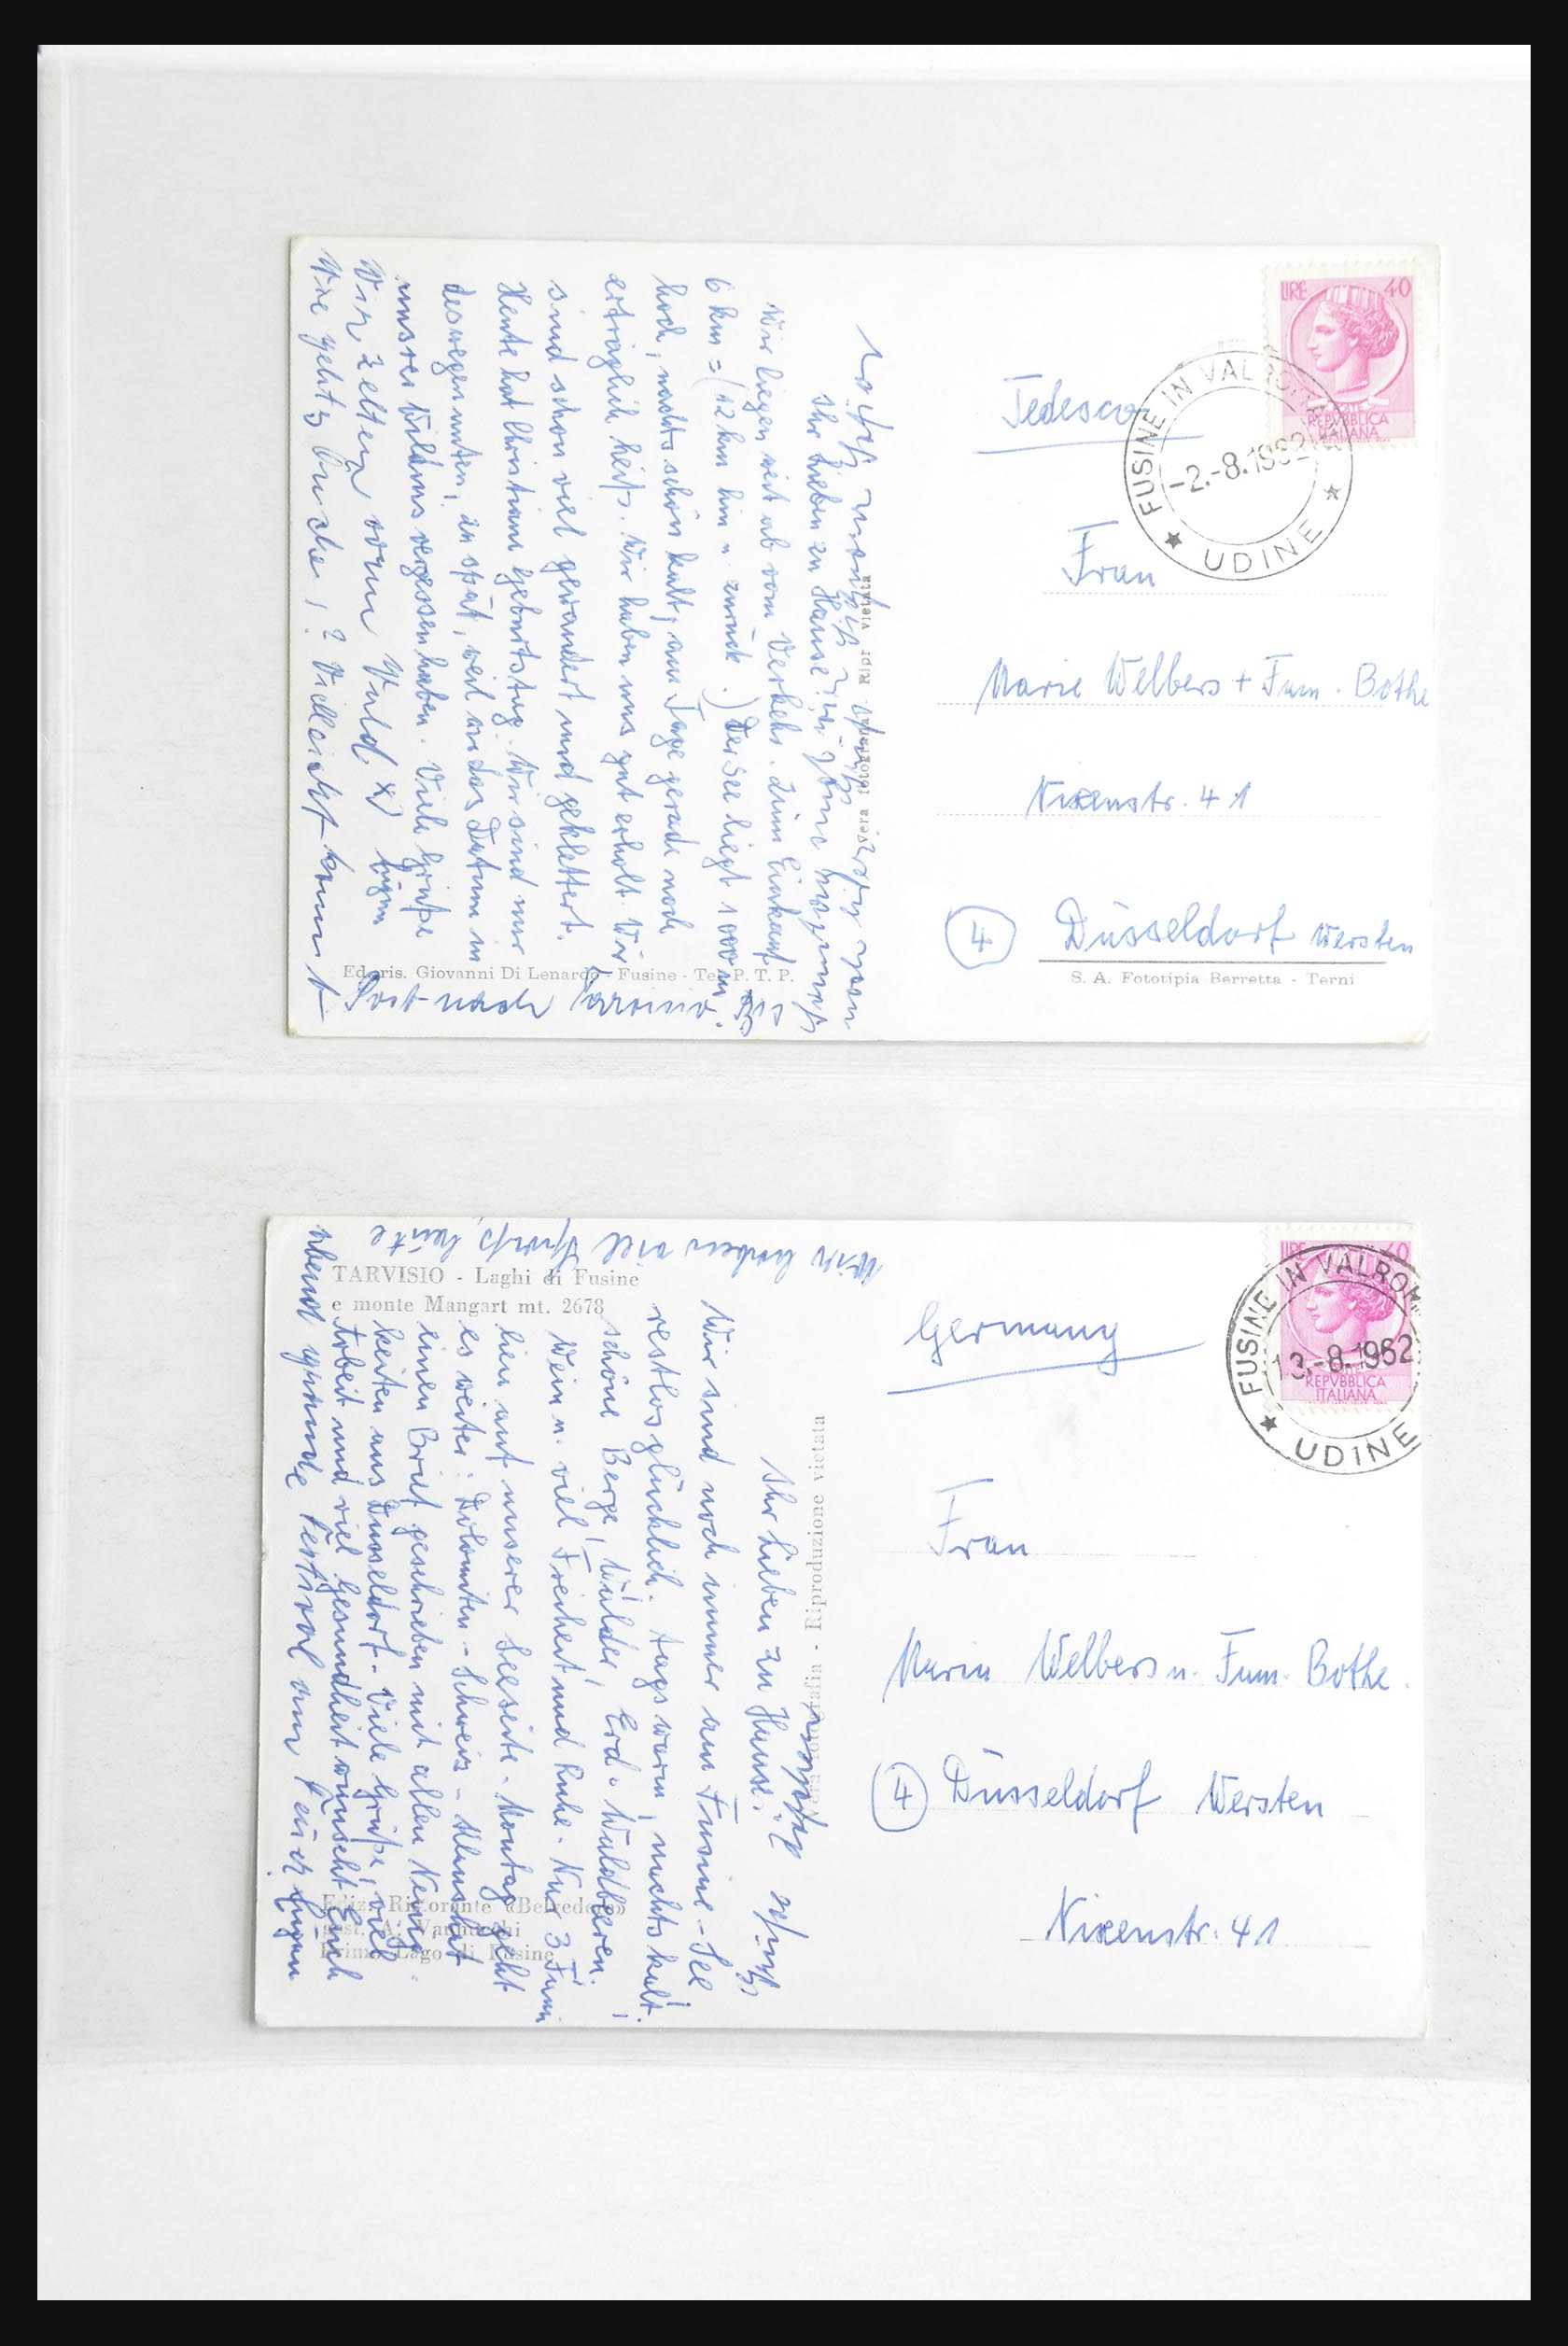 LIRE 40
REPVBBLICA
ITALIANA
FUSINE IN VALROMANA
-2.-8.1962
UDINE
Tedesco
Frau
Marie Welbers + Fam. Bothe
Nixenstr. 41
4 Düsseldorf Wersten
S. A. Fototipia Berretta - Terni
Vera fotografia Ripr vietata
Ed. ris. Giovanni Di Lenardo - Fusine - Tel. P. T. P.
Ihr Lieben zu Hause!
Wir liegen weit ab vom Verkehr. Zum Einkauf
6 km = (12 km hin u. zurück.) Der See liegt 1000 m
hoch, nachts schön kalt, am Tage gerade noch
erträglich heiß. Wir haben uns gut erholt. Wir
sind schon viel gewandert und geklettert.
Heute hat Christiane Geburtstag. Wir sind nur
deswegen unten, zu spät, weil wir das Datum in
unsrer Wildnis vergessen haben. Viele Grüße
Wir zelten vorm Wald x)
Wie geht's Omchen? Vielleicht kommt
Post nach Tarvisio.
LIRE 40
REPVBBLICA
ITALIANA
FUSINE IN VALROM
13.-8.1962
UDINE
Germany
Frau
Maria Welbers u. Fam. Bothe.
4 Düsseldorf Wersten
Nixenstr. 41
TARVISIO - Laghi di Fusine
e monte Mangart mt. 2678
Vera fotografia - Riproduzione vietata
Ediz. Ristorante «Belvedere»
gest. A. Vannucchi
Primo Lago di Fusine
Ihr Lieben zu Hause!
Wir sind noch immer am Fusine-See
restlos glücklich. Tags warm, nachts kalt.
schöne Berge, Wälder, Erd- Waldbeeren,
Wein u. viel Freiheit und Ruhe. Nur 3 Fami
lien auf unserer Seeseite. Montag geht
es weiter: Dolomiten - Schweiz - Klaus hat
einen Brief geschrieben mit allen Neuig-
keiten aus Düsseldorf. Viele Grüße, viel
Arbeit und viel Gesundheit wünscht Euch
Wir haben viel Spaß, heute
abend